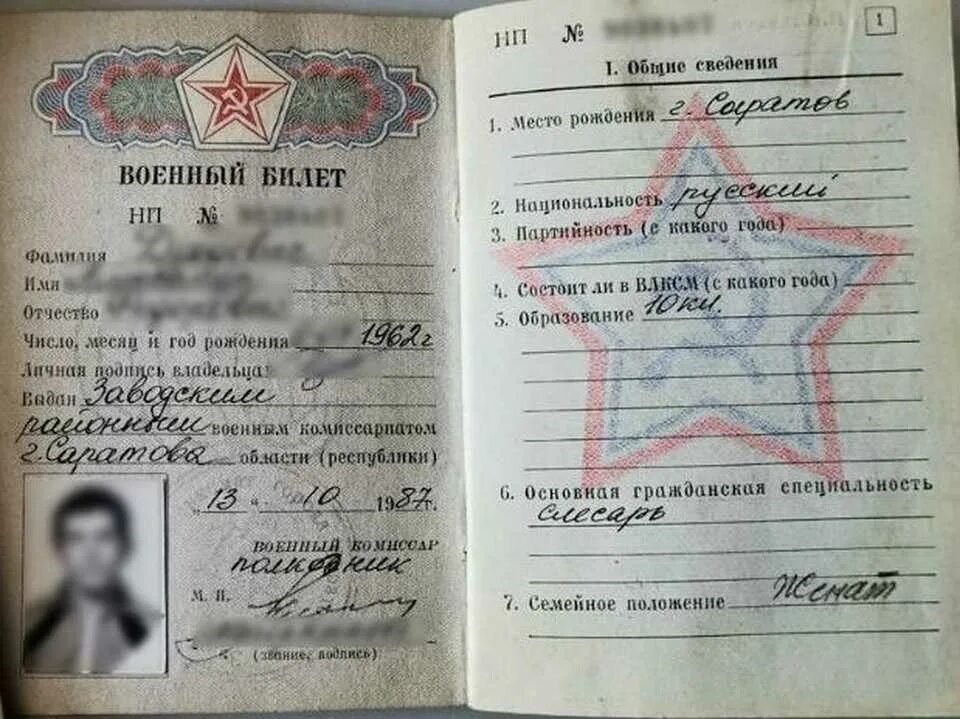 ВОЕННЫЙ БИЛЕТ
НП №
Фамилия
Имя
Отчество
Число, месяц и год рождения 1962г
Личная подпись владельца:
Выдан Заводским
районным военным комиссариатом
г. Саратова области (республики)
„13 " 10 1987г.
ВОЕННЫЙ КОМИССАР
полковник
М. П.
(звание, подпись)
НП №
1
I. Общие сведения
1. Место рождения г. Саратов
2. Национальность русский
3. Партийность (с какого года)
4. Состоит ли в ВЛКСМ (с какого года)
5. Образование 10 кл.
6. Основная гражданская специальность
слесарь
7. Семейное положение Женат